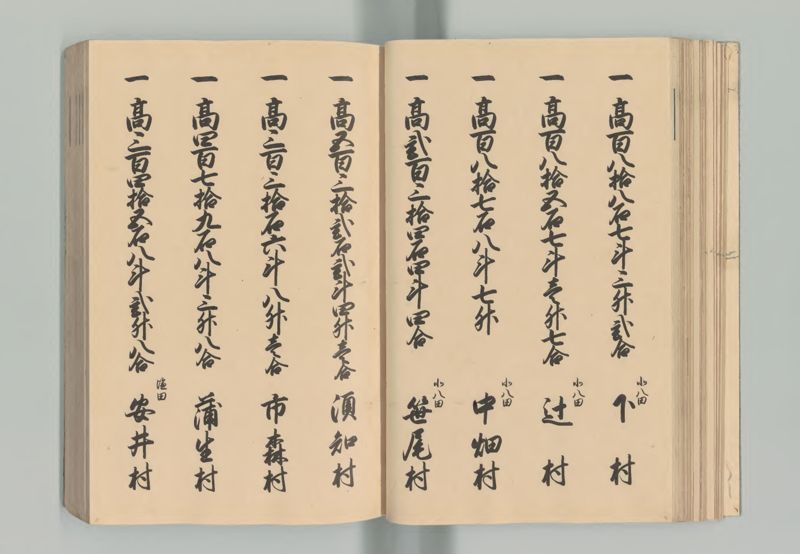 一 高百八拾八石七斗三升弐合 小八田 下村
一 高百八拾五石七斗壱升七合 小八田 辻村
一 高百八拾七石八斗七升 小八田 中畑村
一 高弐百三拾四石四斗四合 小八田 笹尾村
一 高五百三拾弐石弐斗四升壱合 須知村
一 高三百三拾石六斗八升壱合 市森村
一 高四百七拾九石八斗三升八合 蒲生村
一 高三百四拾五石八斗弐升八合 安井村